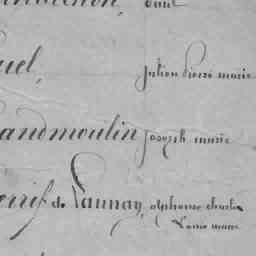 uel, Julien Pierre marie
andmoulin Joseph marie
de Launay, alphonse charles
Louis marie